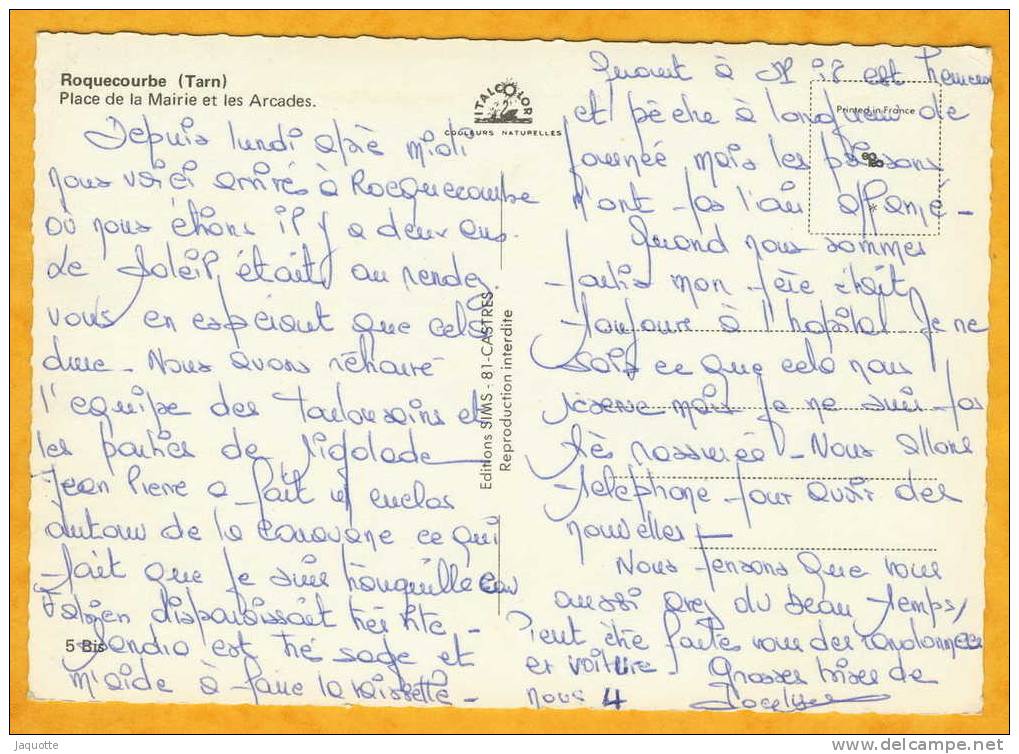 Roquecourbe (Tarn)
Place de la Mairie et les Arcades.
ITALCOLOR
COULEURS NATURELLES
Depuis lundi aprè midi
nous voici arrivés à Rocquecourbe
où nous étions il y a deux ans.
Le soleil était au rendez
vous en espérant que cela
dure - Nous avons retrouvé
l'equipe des Toulousains et
les parties de rigolade
Jean Pierre a fait un enclos
autour de la caravane ce qui
fait que je suis tranquille car
disparaissait très vite -
Sandra est tré sage et
m'aide à faire la vaisselle -
5 Bis
Editions SIMS - 81-CASTRES
Reproduction interdite
Printed in France
Quant à il est heureux
et pêche à longueur de
journée mais les poissons
n'ont pas l'air affamé -
Quand nous sommes
partis mon père était
toujours à l'hopital je ne
sais ce que cela nous
réserve mais je ne suis pas
très rassurée - Nous allons
telephone pour avoir des
nouvelles -
Nous pensons que vous
aussi avez du beau temps,
Peut être faites vous des randonnées
en voiture - Grosses bises de
nous 4 Jocelyne
Jaquotte
www.delcampe.net